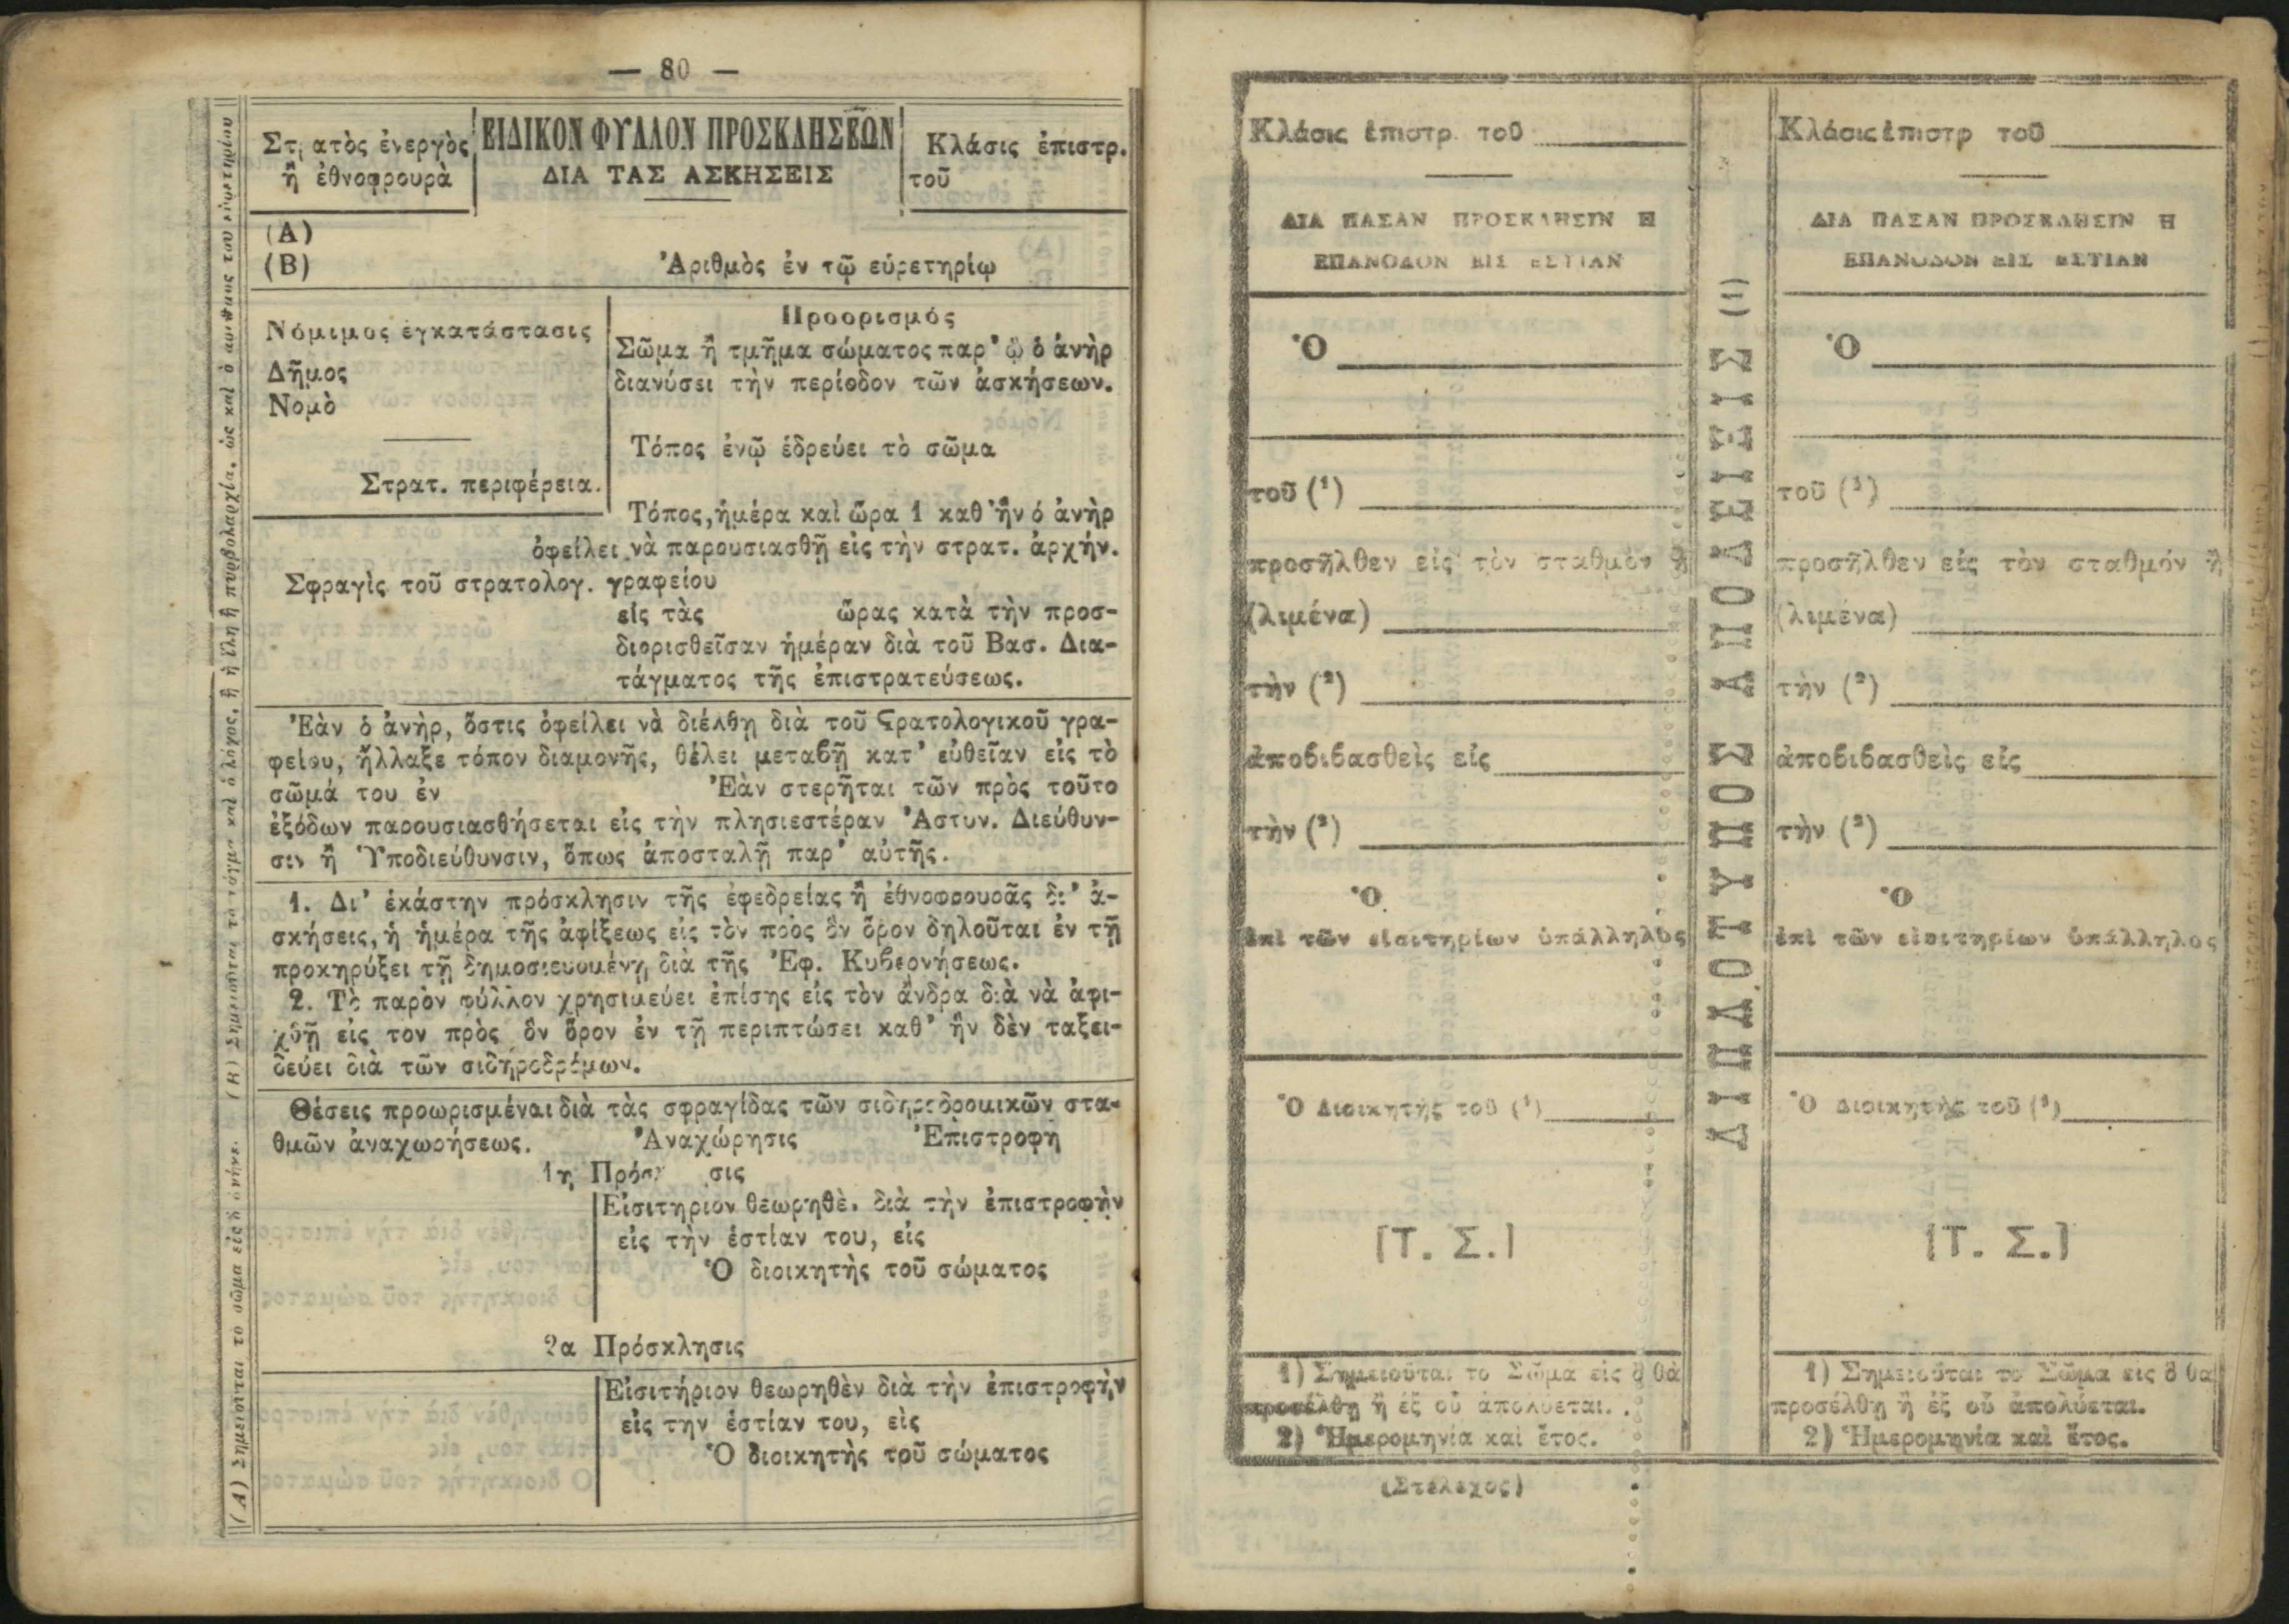 — 80 —
Στρατὸς ἐνεργὸς
ἢ ἐθνοφρουρὰ
ΕΙΔΙΚΟΝ ΦΥΛΛΟΝ ΠΡΟΣΚΛΗΣΕΩΝ
ΔΙΑ ΤΑΣ ΑΣΚΗΣΕΙΣ
Κλάσις ἐπιστρ.
τοῦ
(Α)
(Β)
Ἀριθμὸς ἐν τῷ εὑρετηρίῳ
Νόμιμος ἐγκατάστασις
Δῆμος
Νομὸ
Στρατ. περιφέρεια.
Προορισμός
Σῶμα ἢ τμῆμα σώματος παρ' ᾧ ὁ ἀνὴρ
διανύσει τὴν περίοδον τῶν ἀσκήσεων.
Τόπος ἐνῷ ἑδρεύει τὸ σῶμα
Τόπος, ἡμέρα καὶ ὥρα 1 καθ' ἣν ὁ ἀνὴρ
ὀφείλει νὰ παρουσιασθῇ εἰς τὴν στρατ. ἀρχήν.
Σφραγὶς τοῦ στρατολογ. γραφείου
εἰς τὰς ὥρας κατὰ τὴν προσ-
διορισθεῖσαν ἡμέραν διὰ τοῦ Βασ. Δια-
τάγματος τῆς ἐπιστρατεύσεως.
Ἐὰν ὁ ἀνὴρ, ὅστις ὀφείλει νὰ διέλθῃ διὰ τοῦ Στρατολογικοῦ γρα-
φείου, ἤλλαξε τόπον διαμονῆς, θέλει μεταβῇ κατ' εὐθεῖαν εἰς τὸ
σῶμά του ἐν Ἐὰν στερῆται τῶν πρὸς τοῦτο
ἐξόδων παρουσιασθήσεται εἰς τὴν πλησιεστέραν Ἀστυν. Διεύθυν-
σιν ἢ Ὑποδιεύθυνσιν, ὅπως ἀποσταλῇ παρ' αὐτῆς.
1. Δι' ἑκάστην πρόσκλησιν τῆς ἐφεδρείας ἢ ἐθνοφρουρᾶς δι' ἀ-
σκήσεις, ἡ ἡμέρα τῆς ἀφίξεως εἰς τὸν πρὸς ὃν ὅρον δηλοῦται ἐν τῇ
προκηρύξει τῇ δημοσιευομένῃ διὰ τῆς Ἐφ. Κυβερνήσεως.
2. Τὸ παρὸν φύλλον χρησιμεύει ἐπίσης εἰς τὸν ἄνδρα διὰ νὰ ἀφι-
χθῇ εἰς τον πρὸς ὃν ὅρον ἐν τῇ περιπτώσει καθ' ἣν δὲν ταξει-
δεύει διὰ τῶν σιδηροδρόμων.
Θέσεις προωρισμέναι διὰ τὰς σφραγίδας τῶν σιδηροδρομικῶν στα-
θμῶν ἀναχωρήσεως. Ἀναχώρησις Ἐπιστροφη
1η Πρόσκ σις
Εἰσιτηριον θεωρηθὲ. διὰ τὴν ἐπιστροφὴν
εἰς τὴν ἑστίαν του, εἰς
Ὁ διοικητὴς τοῦ σώματος
2α Πρόσκλησις
Εἰσιτήριον θεωρηθὲν διὰ τὴν ἐπιστροφὴν
εἰς την ἑστίαν του, εἰς
Ὁ διοικητὴς τοῦ σώματος
(Α) Σημειοῦται το σῶμα εἰς ὃ ἀνήκει
Κλάσις ἐπιστρ. τοῦ
ΔΙΑ ΠΑΣΑΝ ΠΡΟΣΚΛΗΣΙΝ Η
ΕΠΑΝΟΔΟΝ ΕΙΣ ΕΣΤΙΑΝ
Ὁ
τοῦ (¹)
προσῆλθεν εἰς τὸν σταθμὸν ἢ
(λιμένα)
τὴν (²)
ἀποβιβασθεὶς εἰς
τὴν (²)
Ὁ
ἐπὶ τῶν εἰσιτηρίων ὑπάλληλος
Ὁ Διοικητὴς τοῦ (¹)
(Τ. Σ.)
1) Σημειοῦται το Σῶμα εἰς ὃ θὰ
προσέλθῃ ἢ ἐξ οὗ ἀπολύεται.
2) Ἡμερομηνία καὶ ἔτος.
(Στέλεχος)
ΔΙΠΛΟΤΥΠΟΣ ΑΠΟΔΕΙΞΙΣ (1)
Κλάσις ἐπιστρ τοῦ
ΔΙΑ ΠΑΣΑΝ ΠΡΟΣΚΛΗΣΙΝ Η
ΕΠΑΝΟΔΟΝ ΕΙΣ ΕΣΤΙΑΝ
Ὁ
τοῦ (¹)
προσῆλθεν εἰς τὸν σταθμόν ἢ
(λιμένα)
τὴν (²)
ἀποβιβασθεὶς εἰς
τὴν (²)
Ὁ
ἐπὶ τῶν εἰσιτηρίων ὑπάλληλος
Ὁ Διοικητὴς τοῦ (¹)
(Τ. Σ.)
1) Σημειοῦται το Σῶμα εἰς ὃ θα
προσέλθῃ ἢ ἐξ οὗ ἀπολύεται.
2) Ἡμερομηνία καὶ ἔτος.